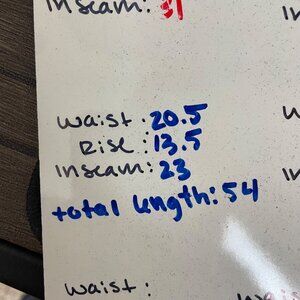 inseam: 31
waist: 20.5
Rise: 13.5
inseam: 23
total length: 54
waist: